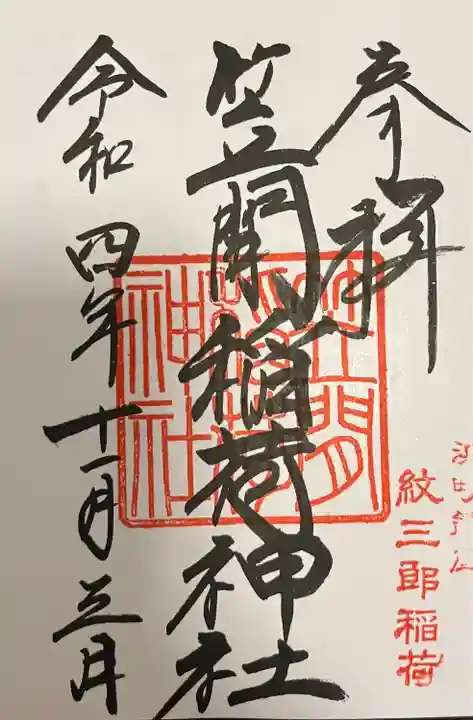 奉拝
紋三郎稲荷
笠間稲荷神社
笠間稲荷神社
令和四年十一月三日